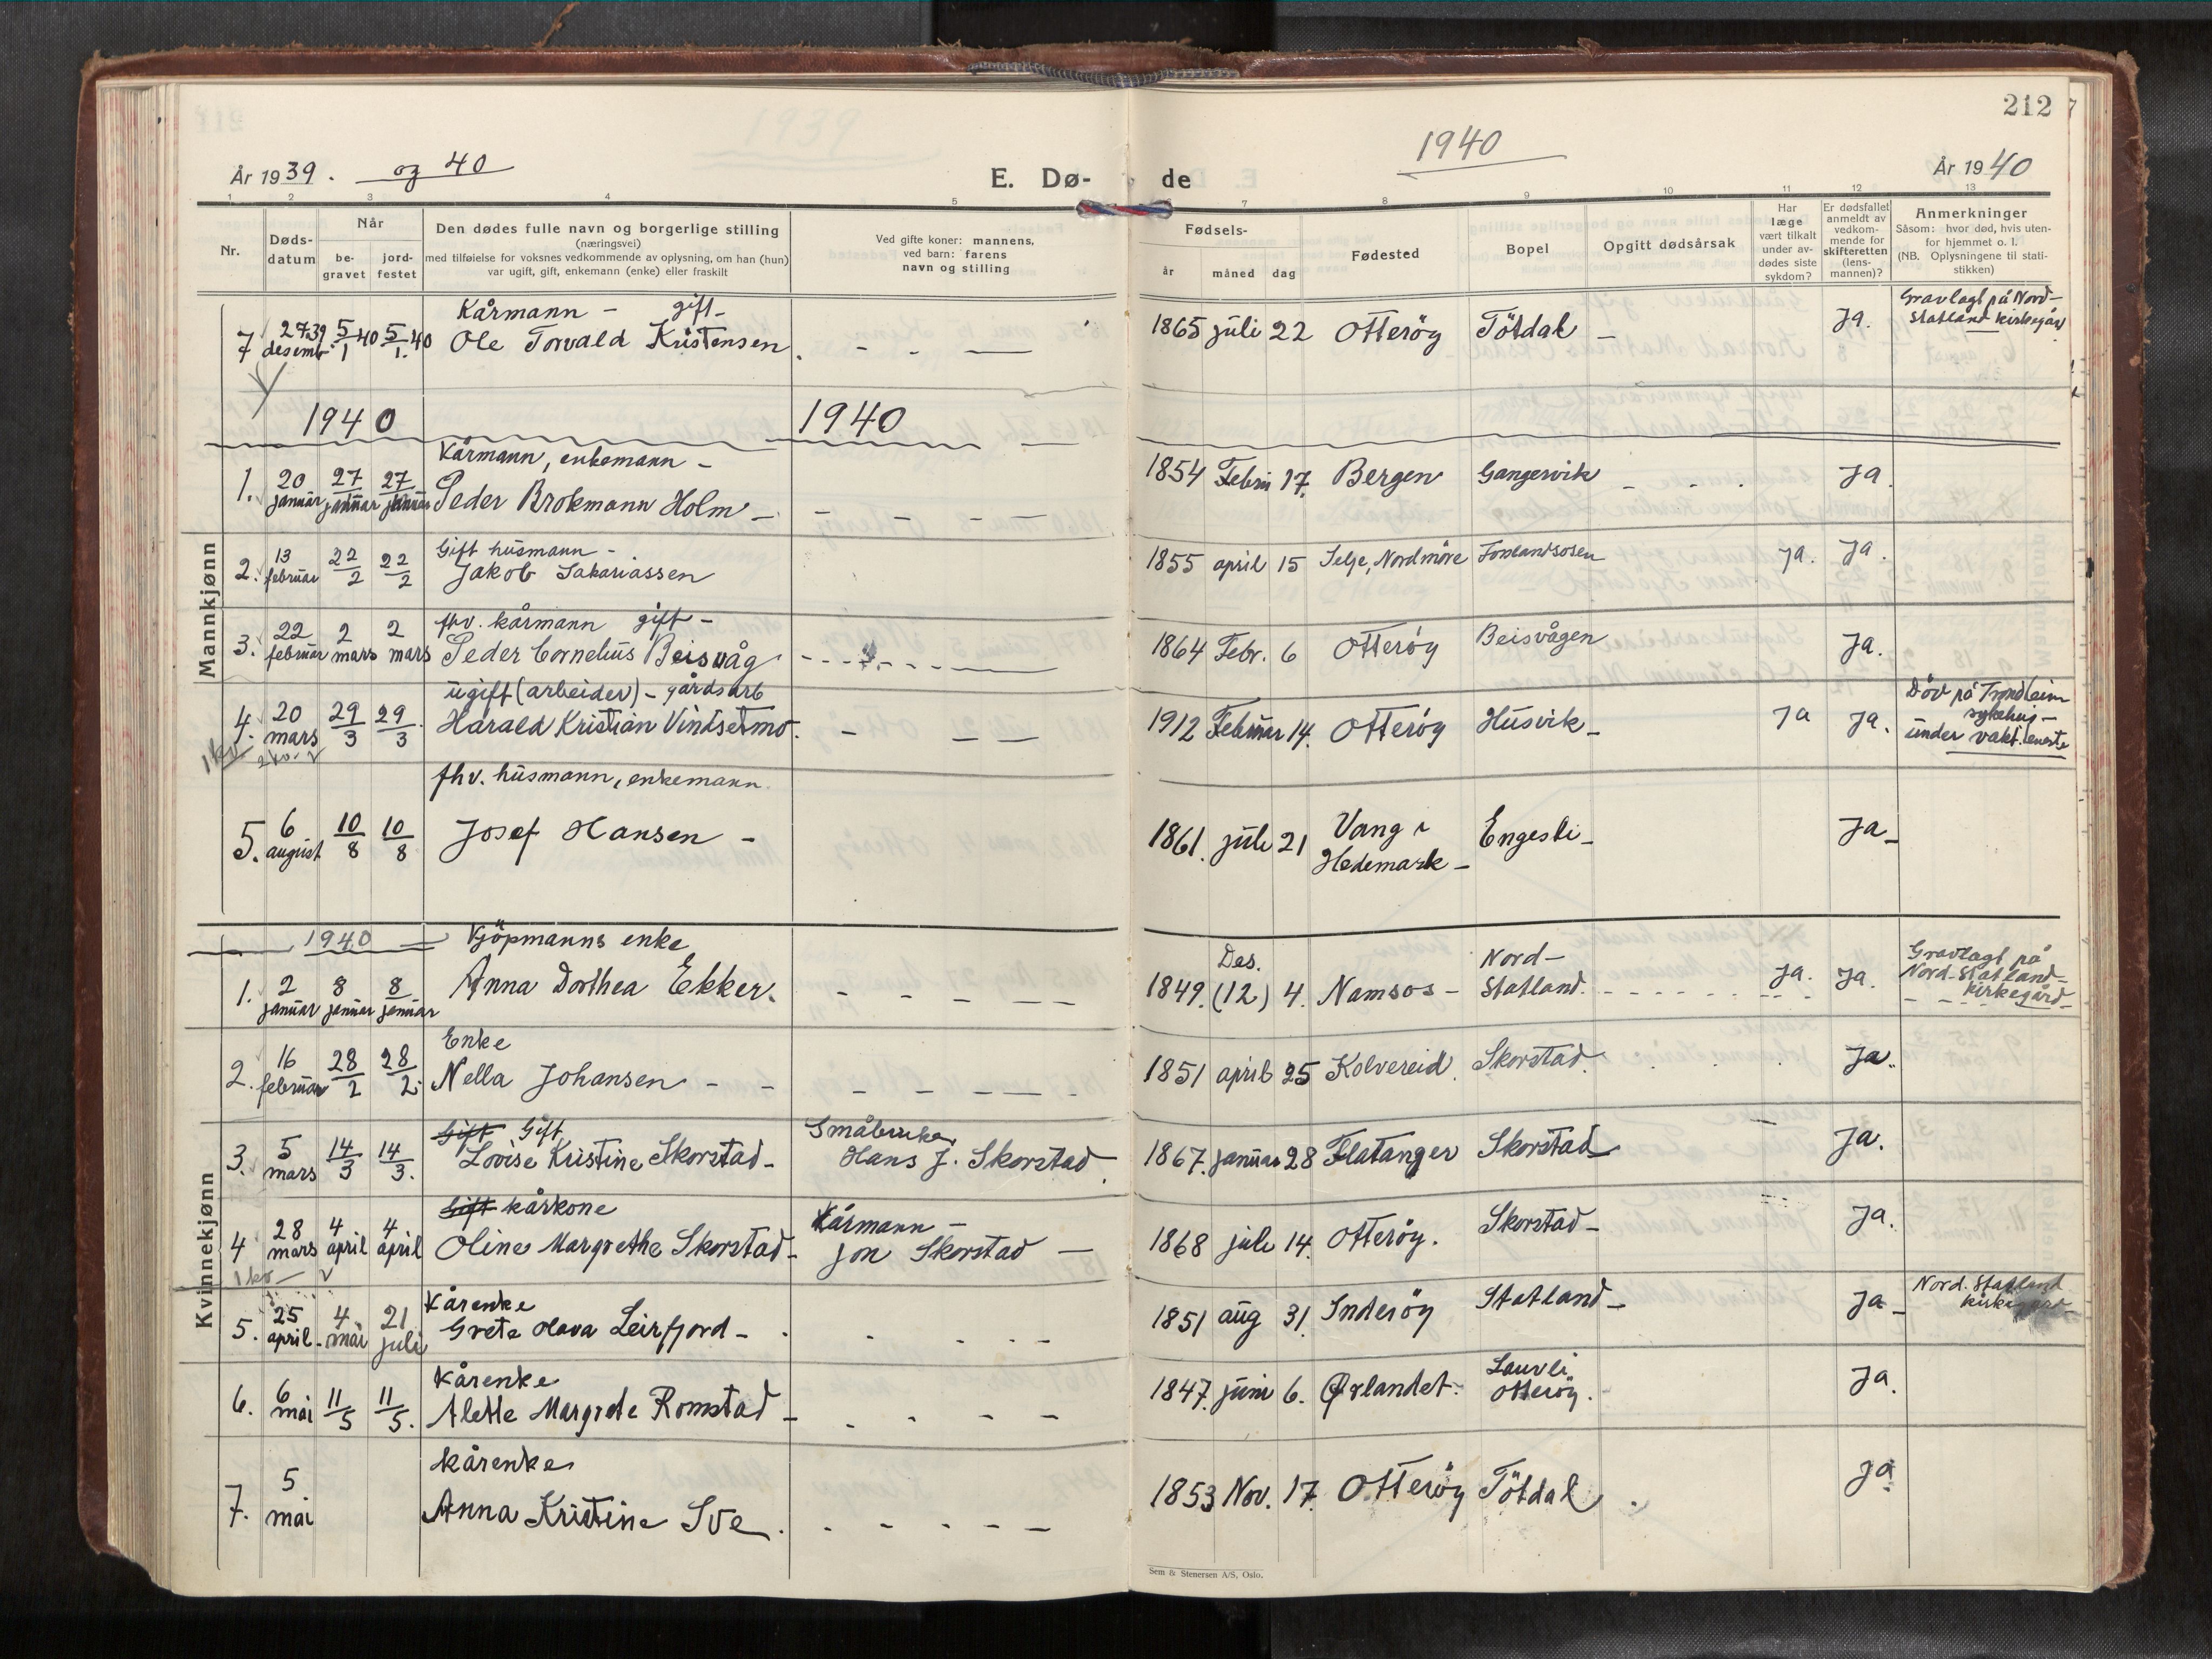 212
1940
År 1939. og 40
E. Dø- de
År 1940
1 2 3 4 5 7 8 9 10 11 12 13
Nr.
Døds-
datum
Når
be-
gravet
jord-
festet
Den dødes fulle navn og borgerlige stilling
(næringsvei)
med tilføielse for voksnes vedkommende av oplysning, om han (hun)
var ugift, gift, enkemann (enke) eller fraskilt
Ved gifte koner: mannens,
ved barn: farens
navn og stilling
Fødsels-
år måned dag
Fødested
Bopel
Opgitt dødsårsak
Har
læge
vært tilkalt
under av-
dødes siste
sykdom?
Er dødsfallet
anmeldt av
vedkom-
mende for
skifteretten
(lens-
mannen)?
Anmerkninger
Såsom: hvor død, hvis uten-
for hjemmet o. l.
(NB. Oplysningene til stati-
stikken)
Kårmann - gift-
7 27 39 desemb. 5/1 40 5/1 40 Ole Torvald Kristensen. - - —
1865 juli 22 Otterøy Tötdal - Ja. Gravlagt på Nord-
Statland kirkegår
1940 1940
Mannkjønn
Kårmann, enkemann -
1. 20 januar 27 januar 27 januar Peder Brokmann Holm - - - - —
1854 Febru 17. Bergen Gangervik - - . Ja.
Gift husmann -
2. 13 februar 22/2 22/2 Jakob Sakariassen
1855 april 15 Selje, Nordmöre Fosslandsosen Ja. Ja.
fhv. kårmann gift -
3. 22 februar 2 mars 2 mars Peder Cornelius Beisvåg
1864 Febr. 6 Otterøy Beisvågen Ja.
ugift (arbeider) - gårdsarb
4. 20 mars 29/3 29/3 Harald Kristian Vindsetmo. - — —
1912 Februar 14. Otterøy Husvik - Ja Ja. Död på Trondheim
sykehus -
under vakt.teneste
fhv. husmann, enkemann
5. 6 august 10/8 10/8 Josef Hansen -
1861. juli 21 Vang i
Hedemark - Engesli - Ja -
Kvinnekjønn
1940
Kjöpmanns enke
1. 2 januar 8 januar 8 januar Anna Dorthea Ekker. - - - — —
1849. Des. (12) 4. Namsos - Nord-
Statland. Ja. Ja. Gravlagt på
Nord-Statland-
kirkegård -
Enke
2. 16 februar 28/2 28/2 Nella Johansen - -
1851 april 25 Kolvereid. Skorstad. Ja.
Gift Gift
3. 5 mars 14/3 14/3. Lovise Kristine Skorstad - Småbruker
Hans J. Skorstad.
1867. januar 28 Flatanger Skorstad Ja.
Gift kårkone
4 28 mars 4 april 4 april Oline Margrethe Skorstad - Kårmann -
Jon Skorstad —
1868 juli 14. Otterøy. Skorstad - Ja.
1 kv
Kårenke
5. 25 april. 4 mai 21 juli Grete Hava Leirfjord - .
1851 aug 31. Inderöy Statland - Ja - Nord. Statland
kirkegård -
Kårenke
6. 6 mai 11/5 11/5. Alette Margrete Romstad - - - - -
1847. juni 6. Ørlandet. Lauvli
Otteröy. Ja.
Kårenke
7. 5 mai Anna Kristine Sve. - - - - —
1853 Nov. 17. Otterøy Tötdal Ja.
Sem & Stenersen A/S, Oslo.